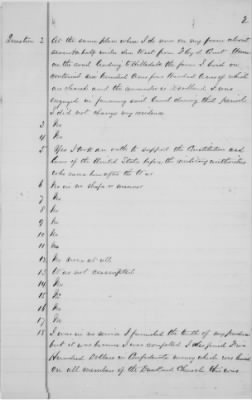 2
Question 2 At the same place where I do now on my farm about
seven & half miles due West from Floyd Court House
on the road leading to Hillsville the farm I lived on
contained six hundred acres four Hundred acres of which
are cleared and the remainder is Woodland I was
engaged in farming said Land during that period
I did not change my residence
3 No
4 No
5 Yes I took an oath to support the Constitution and
Laws of the United States before the military authorities
who were here after the War
6 No in no shape or manner
7 No
8 No
9 No
10 No
11 No
12 No never at all
13 Was not conscripted
14 No
15 No
16 No
17 No
18 I was in no service I furnished the tenth of my produce
but it was because I was compelled I also paid Two
Hundred Dollars in Confederate money which was levied
on all members of the Dunkard Church this was